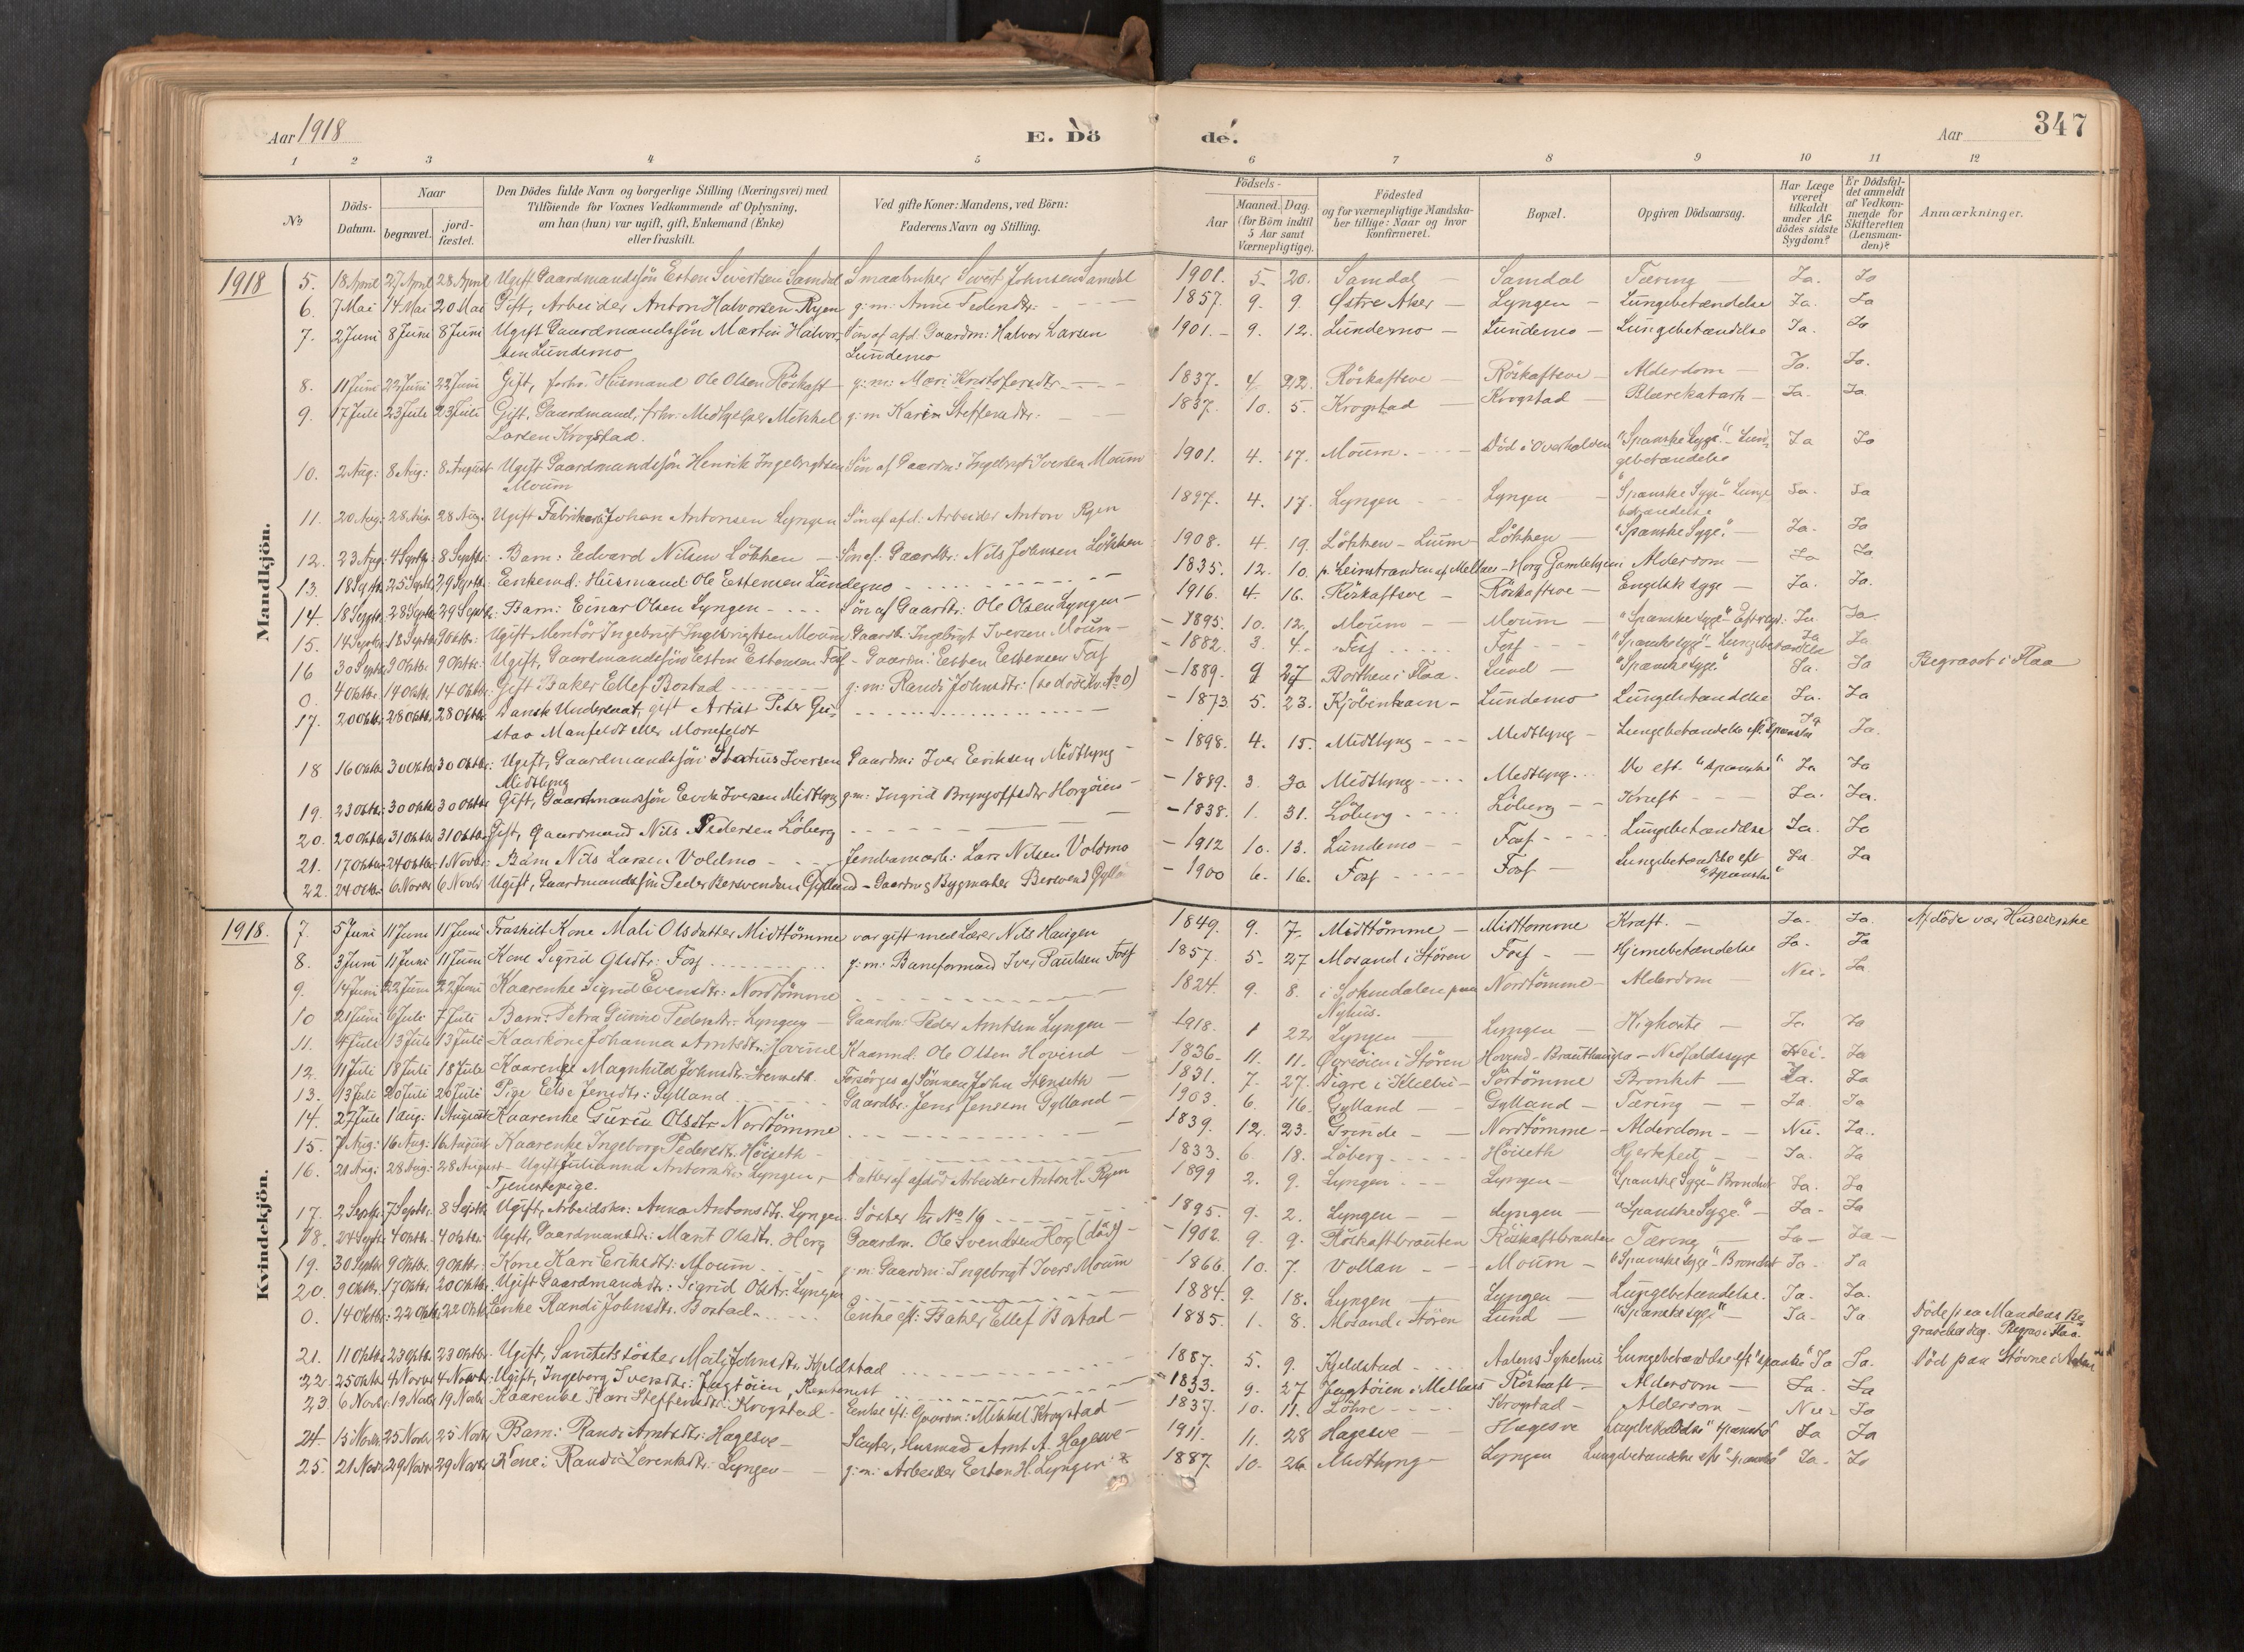 Aar 1918 E. Dö de. Aar 347
1 2 3 4 5 6 7 8 9 10 11 12
No Döds-Datum. Naar begravet. jord-fæstet. Den Dödes fulde Navn og borgerlige Stilling (Næringsvei) med Tilföiende for Voxnes Vedkommende af Oplysning, om han (hun) var ugift, gift, Enkemand (Enke) eller fraskilt. Ved gifte Koner: Mandens, ved Börn: Faderens Navn og Stilling. Födsels- Aar Maaned. Dag. (for Börn indtil 5 Aar samt Værnepligtige). Födested og for værnepligtige Mandskaber tillige: Naar og hvor konfirmeret. Bopæl. Opgiven Dödsaarsag. Har Læge været tilkaldt under Afdödes sidste Sygdom? Er Dödsfaldet anmeldt af Vedkommende for Skifteretten (Lensmanden)? Anmærkninger.
Mandkjön.
1918 5. 18 April 27 April 28 April Ugift Gaardmandssön Esten Sivertsen Samdal Smaabruker Sivert Johnsen Samdal 1901. 5. 20. Samdal Samdal Tæring Ja. Ja
6. 7 Mai 14 Mai 20 Mai Gift, Arbeider Anton Halvorsen Ryen g: m: Anne Pedersdtr: 1857. 9. 9. Østre Aker Lyngen Lungebetændelse Ja. Ja
7. 2 Juni 8 Juni 8 Juni Ugift Gaardmandssön Martin Halvor- Sön af afd. Gaardm: Halvor Larsen 1901. 9. 12. Lundemo Lundemo Lungebetændelse Ja. Ja
sen Lundemo Lundemo
8. 11 Juni 22 Juni 22 Juni Gift, forhv. Husmand Ole Olsen Röskaft g: m: Mari Kristofersdtr 1837. 4. 22. Röskaftsve Röskaftsve Alderdom Ja. Ja.
9. 17 Juli 23 Juli 23 Juli Gift, Gaardmand, frhv: Medhjelper Mikkel g: m Karin Steffensdtr. 1837. 10. 5. Krogstad Krogstad Blærekatarh Ja. Ja
Larsen Krogstad.
10. 2 Aug: 8 Aug: 8 August Ugift Gaardmandssön Henrik Ingebrigtsen Sön af Gaardm: Ingebrigt Iversen Moum 1901. 4. 17. Moum. Död i Overhalden "Spanske Syge" Lun- Ja Ja
Moum gebetændelse
11. 20 Aug: 28 Aug. 28 Aug. Ugift Fabrikarb. Johan Antonsen Lyngen Sön af afd. Arbeider Anton Ryen 1897. 4. 17. Lyngen Lyngen "Spanske Syge" Lunge Ja. Ja
betændelse
12. 23 Aug: 4 Septbr. 8 Septbr: Barn: Edvard Nilsen Lökken Sön af: Gaardbr: Nils Johnsen Lökken 1908. 4. 19. Lökken - Lium Lökken "Spanske Syge". Ja. Ja
13. 18 Septbr. 25 Septbr. 29 Septbr. Enkemd: Husmand Ole Estensen Lundemo 1835. 12. 10. p. Leinstranden af Melhus Horg Gamlehjem Alderdom Ja Ja
14. 18 Septbr. 28 Septbr. 29 Septbr. Barn: Einar Olsen Lyngen Sön af Gaardbr: Ole Olsen Lyngen 1916. 4. 16. Röskaftsve Röskaftsve Engelsk syge Ja. Ja.
15. 14 Septbr. 18 Septbr. 9 Oktbr: Ugift Ingebrigt Ingebrigtsen Moum Gaardb. Ingebrigt Iversen Moum 1895. 10. 12. Moum Moum "Spanske Syge" Ja. Ja.
16 30 Septbr 9 Oktbr. 9 Oktbr. Ugift, Gaardmandssön Esten Estensen Fosf Gaardm: Esten Estensen Fosf 1882. 3. 4. Fosf Fosf "Spanske syge" Lungebetændelse Ja Ja
0. 4 Oktbr. 14 Oktbr. 14 Oktbr. Gift Baker Ellef Bostad g: m: Randi Johnsdtr: (se No 0) 1889. 9 27 Borthen i Flaa. Lund "Spanske syge" Ja. Ja Begravet i Flaa
17. 20 Oktbr. 28 Oktbr. 28 Oktbr. Dansk Undersaat, gift Artist Peter Gu- 1873. 5. 23. Kjöbenhavn Lundemo Lungebetændelse Ja. Ja
stav Manfeldt eller Monefeldt
18 16 Oktbr 30 Oktbr 30 Oktbr: Ugift, Gaardmandssön Iversen Gaardm: Iver Eriksen Midtlyng 1898. 4. 15. Midtlyng Midtlyng Lungebetændelse eft. spanske Ja Ja.
Midtlyng
19. 23 Oktbr: 30 Oktbr 30 Oktbr Gift, Gaardmandssön Erik Iversen Midtlyng g: m: Ingrid Brynjolfsdtr Horgöien 1889. 3. 30 Midtlyng Midtlyng eft. "Spanske" Ja Ja
20. 20 Oktbr 31 Oktbr 31 Oktbr Gift, Gaardmand Nils Pedersen Löberg 1838. 1. 31. Löberg Löberg Kræft Ja. Ja.
21. 17 Oktbr 24 Oktbr 1 Novbr: Barn Nils Larsen Voldmo Jernbanearb: Lars Nilsen Voldmo 1912 10. 13. Lundemo Fosf Lungebetændelse Ja. Ja
22. 24 Oktbr 6 Novbr 6 Novbr Ugift, Gaardmandssön Peder Bersvendsen Gylland Gaardm og Bygmester Bersvend Gylla 1900 6. 16. Fosf Fosf Lungebetændelse eft Ja Ja
"Spanske"
Kvindekjön.
1918. 7. 5 Juni 11 Juni 11 Juni Fraskilt Kone Mali Olsdatter Midttömme var gift med Lærer Nils Haugen 1849. 9. 7. Midttömme Midttömme Kræft. Ja. Ja. Afdöde var Huseierske
8. 3 Juni 11 Juni 11 Juni Kone Sigrid Olsdtr: Fosf g: m: Baneformand Iver Paulsen Fosf 1857. 5. 27 Mosand i Stören Fosf Hjernebetændelse Ja. Ja
9. 14 Juni 22 Juni 22 Juni Kaarenke Sigrid Evensdtr: Nordtömme 1824. 9. 8. i Soknedalen paa Nordtömme Alderdom Nei. Ja
Nyhus.
10 21 Juni 6 Juli 7 Juli Barn: Petra Gurine Pedersdtr. Lyngen Gaardm: Peder Arntsen Lyngen 1918. 1 22 Lyngen Lyngen Kighoste Ja. Ja
11. 4 Juli 13 Juli 13 Juli Kaarkone Johanna Arntsdtr: Hovind Kaarmd. Ole Olsen Hovind 1836. 11. 11. i Stören Hovind Nedfaldssyge Nei. Ja
12. 11 Juli 18 Juli 18 Juli Kaarenke Magnhild Johnsdtr: Stenseth. Forsörges af Sönnen John Stenseth 1831. 7. 27. Digre i Klæbu Sörtömme Bronkit Ja. Ja
13. 13 Juli 20 Juli 20 Juli Pige Else Jensdtr: Gylland Gaardbr: Jens Jensen Gylland 1903. 6. 16. Gylland Gylland Tæring Ja Ja
14. 27 Juli 1 Aug. 1 August Kaarenke Guru Olsdtr Nordtömme 1839. 12. 23. Grinde Nordtömme Alderdom Nei. Ja.
15. 7 Aug: 16 Aug: 16 August Kaarenke Ingeborg Pedersdtr. Höiseth 1833. 6. 18. Löberg Höiseth Hjertefeil Ja. Ja
16. 21 Aug: 28 Aug: 28 August Ugift Julianna Antonsdtr Lyngen, Datter af afdöd Arbeider Anton H. Ryen 1899 2. 9. Lyngen Lyngen "Spanske Syge" Bronkit Ja. Ja
Tjenestepige.
17. 2 Septbr: 7 Septbr. 8 Septbr Ugift, Arbeidske: Anna Antonsdtr. Lyngen Söster til No 16 1895. 9. 2. Lyngen Lyngen "Spanske Syge" Ja. Ja
18. 24 Septbr. 4 Oktbr. 4 Oktbr. Ugift, Gaardmandsdtr: Marit Olsdtr. Horg Gaardm. Ole Svendsen Horg (död) 1902. 9. 9. Röskaftbrauten Röskaftbrauten Tæring Ja Ja
19. 30 Septbr 9 Oktbr. 9 Oktbr. Kone Kari Eriksdtr: Moum g: m: Gaardm: Ingebrigt Ivers Moum 1866. 10. 7. Vollan Moum "Spanske Syge" Bronchit Ja. Ja
20. 9 Oktbr. 17 Oktbr. 20 Oktbr. Ugift Gaardmandsdtr: Sigrid Olsdtr. Lyngen 1884. 9. 18. Lyngen Lyngen Lungebetændelse. Ja. Ja.
0. 14 Oktbr: 22 Oktbr 22 Oktbr Enke Randi Johnsdtr Bostad Enke eft: Baker Ellef Bostad 1885. 1. 8. Mosand i Stören Lund "Spanske syge" Ja. Ja Döde paa Mandens Be-
gravelsesdag. Begrav i Flaa.
21. 11 Oktbr. 23 Oktbr. 23 Oktbr. Ugift, Sanitetssöster Mali Johnsdtr. Kjeldstad 1887. 5. 9. Kjeldstad Aalens Sykehus Lungebetændelse eft "Spanske" Ja Ja. Död paa Stövne i
22. 25 Oktbr 4 Novbr 4 Novbr: Ugift, Ingeborg Iversdtr: Jagtöien, Rentenist 1833. 9. 27 Jagtöien i Melhus Röskaft Alderdom Ja. Ja
23. 6 Novbr. 19 Novbr 19 Novbr Kaarenke Kari Steffensdtr: Krogstad Enke eft: Gaardm: Mikkel Krogstad 1837. 10. 11. Löhre Krogstad Alderdom Nei. Ja
24. 15 Novbr. 25 Novbr 25 Novbr Barn: Randi Arntsdtr: Hagesve Husmand Arnt A. Hagesve 1911. 11. 28 Hagesve Hagesve Lungebetændelse "Spanske" Ja Ja
25. 21 Novbr 29 Novbr 29 Novbr Kone: Randi Lorentsdtr: Lyngen g: m: Arbeider Esten H. Lyngen 1887. 10. 26. Midtlyng Lyngen Lungebetændelse eft "spanske" Ja. Ja